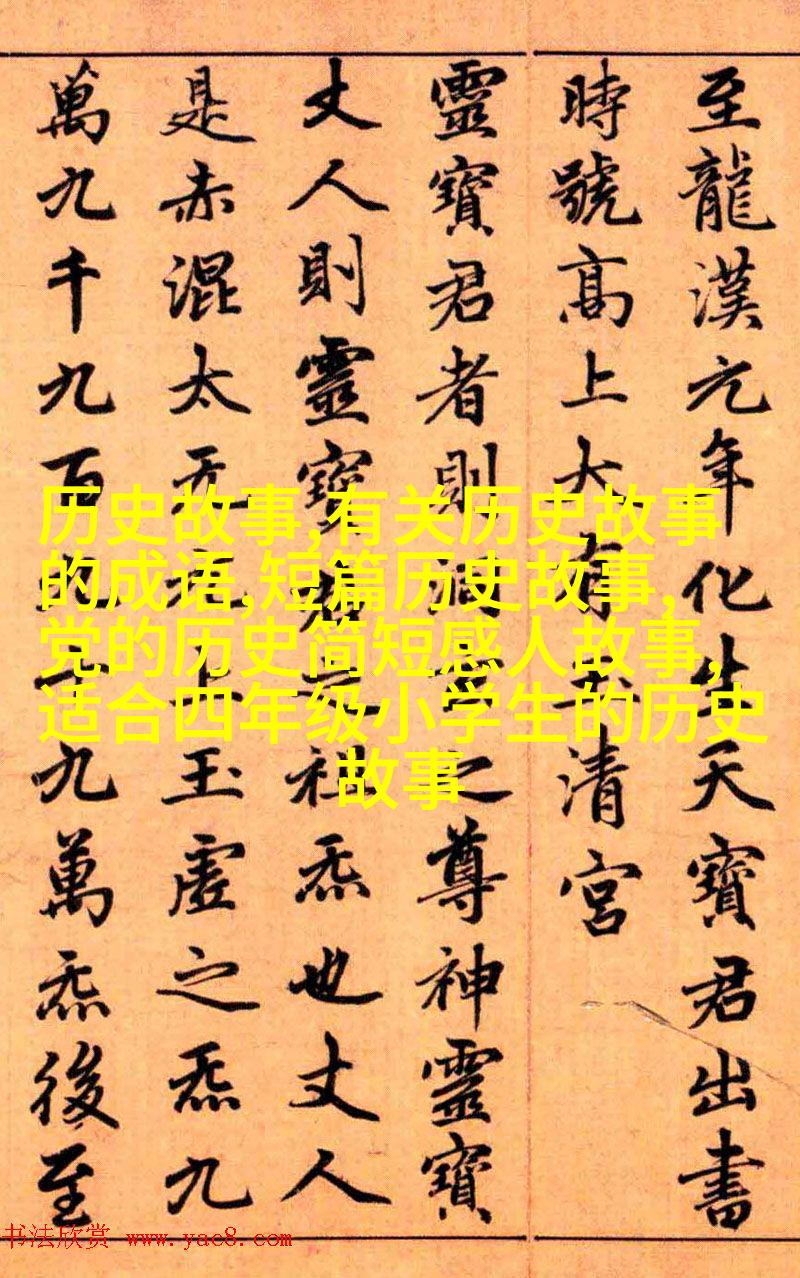 至龍漢元年化生天寶君出書
時號高上大有玉清宮
靈寶君者則洞玄之尊神靈寶
丈人則靈寶君之祖炁也丈人
是赤混太无元上玉虛之炁九
萬九千九百九十九萬炁後至
历史故事,有关历史故事
的成语,短篇历史故事,
党的历史简短感人故事,
适合四年级小学生的历史
故事
书法欣赏 www.yac8.com